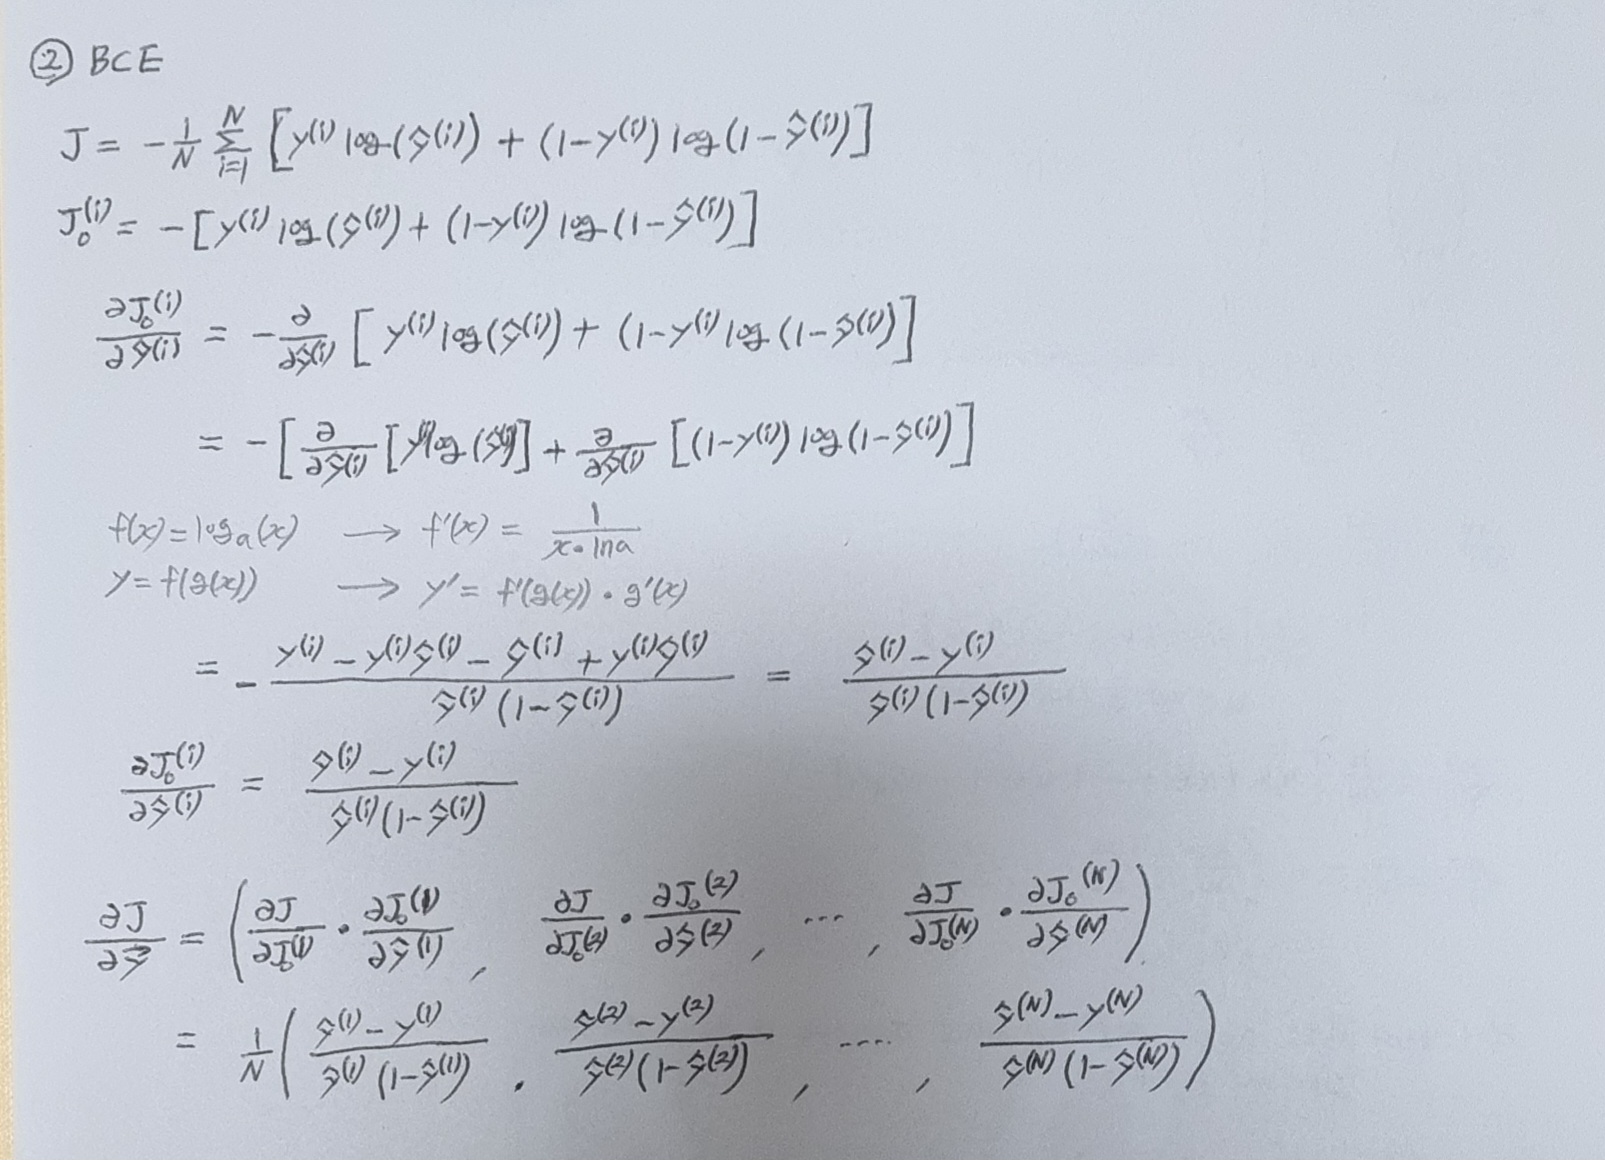 ② BCE
J = -1/N Σ_{i=1}^{N} [y^(i) log(ŷ^(i)) + (1-y^(i)) log(1-ŷ^(i))]
J₀^(i) = -[y^(i) log(ŷ^(i)) + (1-y^(i)) log(1-ŷ^(i))]
∂J₀^(i)/∂ŷ^(i) = -∂/∂ŷ^(i) [y^(i) log(ŷ^(i)) + (1-y^(i) log(1-ŷ^(i))]
= -[∂/∂ŷ^(i) [y^(i) log(ŷ^(i))] + ∂/∂ŷ^(i) [(1-y^(i)) log(1-ŷ^(i))]
f(x) = log_a(x) → f'(x) = 1/(x·ln a)
y = f(g(x)) → y' = f'(g(x))·g'(x)
= -(y^(i) - y^(i)ŷ^(i) - ŷ^(i) + y^(i)ŷ^(i))/(ŷ^(i)(1-ŷ^(i))) = (ŷ^(i) - y^(i))/(ŷ^(i)(1-ŷ^(i)))
∂J₀^(i)/∂ŷ^(i) = (ŷ^(i) - y^(i))/(ŷ^(i)(1-ŷ^(i)))
∂J/∂ŷ⃗ = (∂J/∂J₀^(1) · ∂J₀^(1)/∂ŷ^(1), ∂J/∂J₀^(2) · ∂J₀^(2)/∂ŷ^(2), ..., ∂J/∂J₀^(N) · ∂J₀^(N)/∂ŷ^(N))
= 1/N ((ŷ^(1) - y^(1))/(ŷ^(1)(1-ŷ^(1))), (ŷ^(2) - y^(2))/(ŷ^(2)(1-ŷ^(2))), ...., (ŷ^(N) - y^(N))/(ŷ^(N)(1-ŷ^(N))))